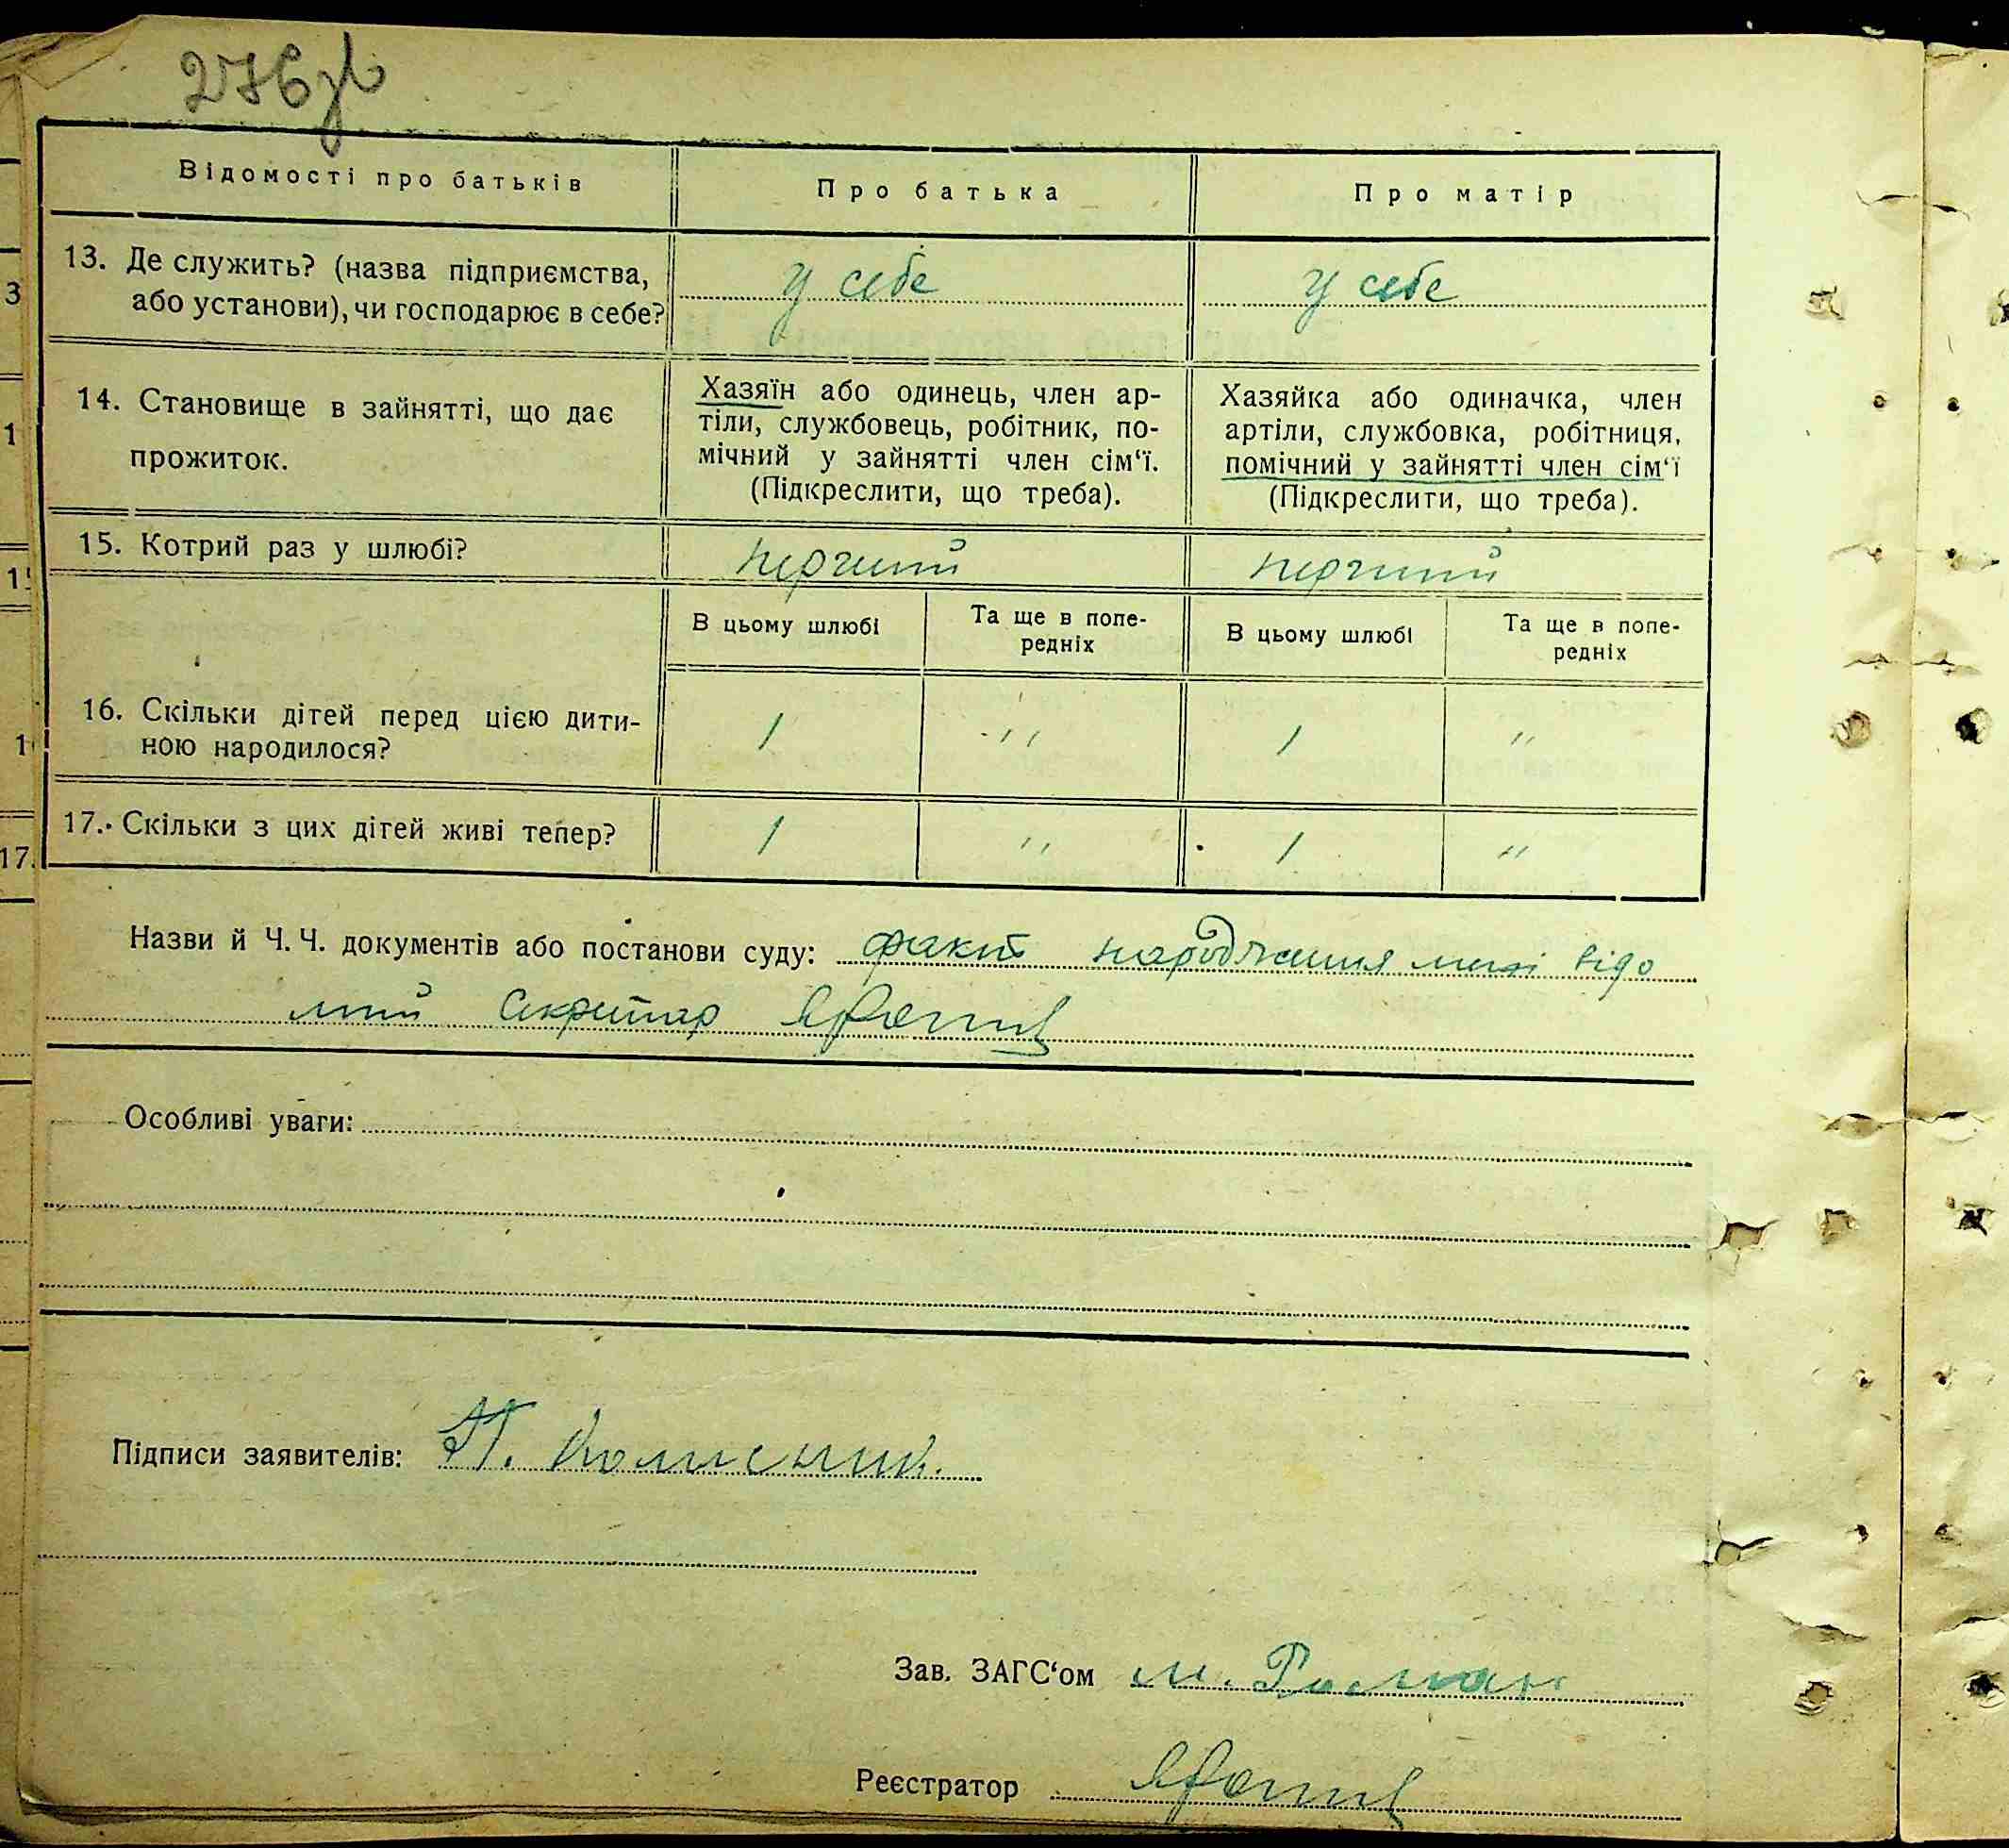 276зв
Відомості про батьків
Про батька
Про матір
13. Де служить? (назва підприємства,
або установи), чи господарює в себе?
у себе
у себе
14. Становище в зайнятті, що дає
прожиток.
Хазяїн або одинець, член ар-
тіли, службовець, робітник, по-
мічний у зайнятті член сім‘ї.
(Підкреслити, що треба).
Хазяйка або одиначка, член
артіли, службовка, робітниця,
помічний у зайнятті член сім‘ї
(Підкреслити, що треба).
15. Котрий раз у шлюбі?
перший
перший
В цьому шлюбі
Та ще в попе-
редніх
В цьому шлюбі
Та ще в попе-
редніх
16. Скільки дітей перед цією дити-
ною народилося?
1
"
1
"
17. Скільки з цих дітей живі тепер?
1
"
1
"
Назви й Ч. Ч. документів або постанови суду: факт народження мені відо
мий Секретар
Особливі уваги:
Підписи заявителів: П. Колисник.
Зав. ЗАГС‘ом
Реєстратор
3
1
1
17.